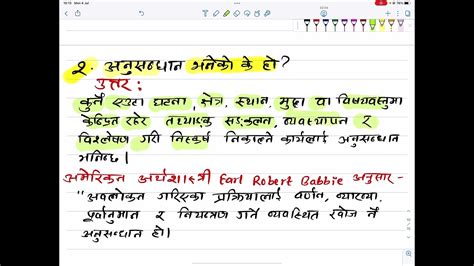 २. अनुसन्धान भनेको के हो?
उत्तर:
कुनै एउटा घटना, क्षेत्र, स्थान, मुद्दा वा विषयवस्तुमा
केन्द्रित रहेर तथ्याङ्क सङ्कलन, व्यवस्थापन र
विश्लेषण गरी निष्कर्ष निकाल्ने कार्यलाई अनुसन्धान
भनिन्छ।
अमेरिकन अर्थशास्त्री Earl Robert Babbie अनुसार-
"अवलोकन गरिएका प्रक्रियालाई वर्णन, व्याख्या,
पूर्वानुमान र नियन्त्रण गर्ने व्यवस्थित खोज नै
अनुसन्धान हो।